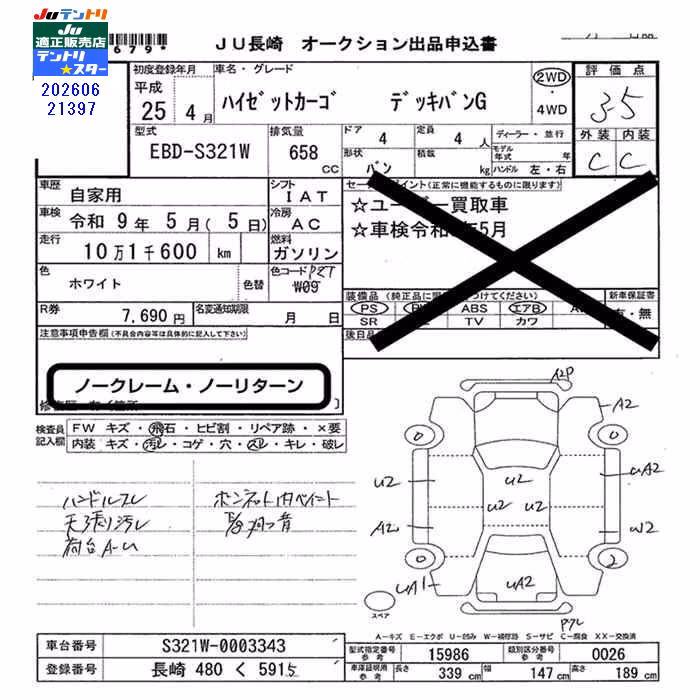 Juテントリ
Ju
適正販売店
テントリ
★スター
202606
21397
679*
JU長崎 オークション出品申込書
初度登録年月 車名・グレード 評価点
平成 25 4月 ハイゼットカーゴ デッキバンG 2WD ・ 4WD 3.5
型式 排気量 ドア 4 定員 4人 ディーラー・並行 外装 内装
EBD-S321W 658 CC 形状 バン 積載 kg モデル年式 年 ハンドル 左・右 C C
車歴 自家用 シフト IAT
車検 令和 9年 5月 ( 5日) 冷房 AC
走行 10万1千600 km 燃料 ガソリン
色 ホワイト 色替 色コード W09
セールスポイント(正常に機能するものに限ります)
☆ユーザー買取車
☆車検令和 年5月
R券 7,690円 名変通知期限 月 日
装備品 (純正品に限 つけてください) 新車保証書
PS ABS エアB 有・無
SR TV カワ
後日品
注意事項申告欄(不具合内容等は具体的に記入して下さい)
ノークレーム・ノーリターン
検査員記入欄 FW キズ・飛石・ヒビ割・リペア跡・×要
内装 キズ・汚レ・コゲ・穴・スレ・キレ・破レ
ハンドルスレ ボンネット内ペイント
天張り汚レ
荷台A-U
A2P
A2
0 0
U2 U2 UA2
U2 U2
A2 W2
0 2
UA1 UA2
スペア
A-キズ E-エクボ U-凹み W-補修跡 S-サビ C-腐食 XX-交換済
車台番号 S321W-0003343 型式指定番号 参考 15986 類別区分番号 参考 0026
登録番号 長崎 480 く 5915 車庫証明用 参考 長さ 339 cm 幅 147 cm 高さ 189 cm